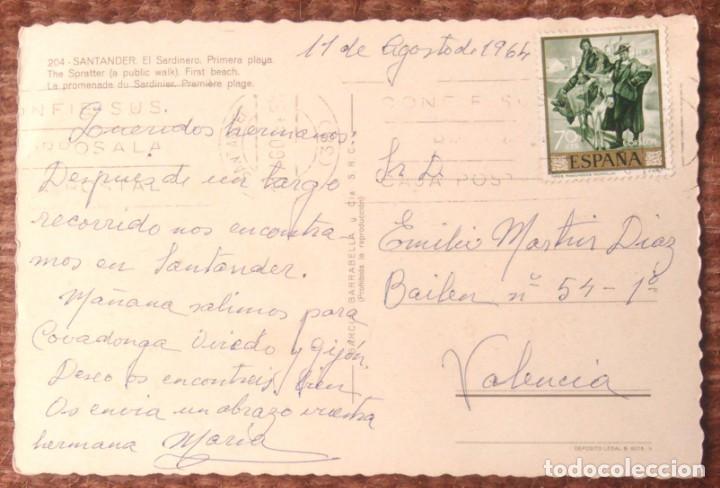 204 - SANTANDER. El Sardinero. Primera playa.
The Spratter (a public walk). First beach.
La promenade du Sardinier. Première plage.
11 de Agosto de 1964
Queridos hermanos:
Despues de un largo
recorrido nos encontra-
mos en Santander.
Mañana salimos para
Covadonga Oviedo y Gijón.
Deseo os encontreis bien
Os envia un abrazo vuestra
hermana María
GARCIA GARRABELLA y Cía
(Prohibida la reproducción)
70
ESPAÑA
CONFIE SUS
CAJA POST
Sr. D.
Emilio Martin Diaz
Bailen nº 54-1º
Valencia
DEPOSITO LEGAL B.
todocoleccion